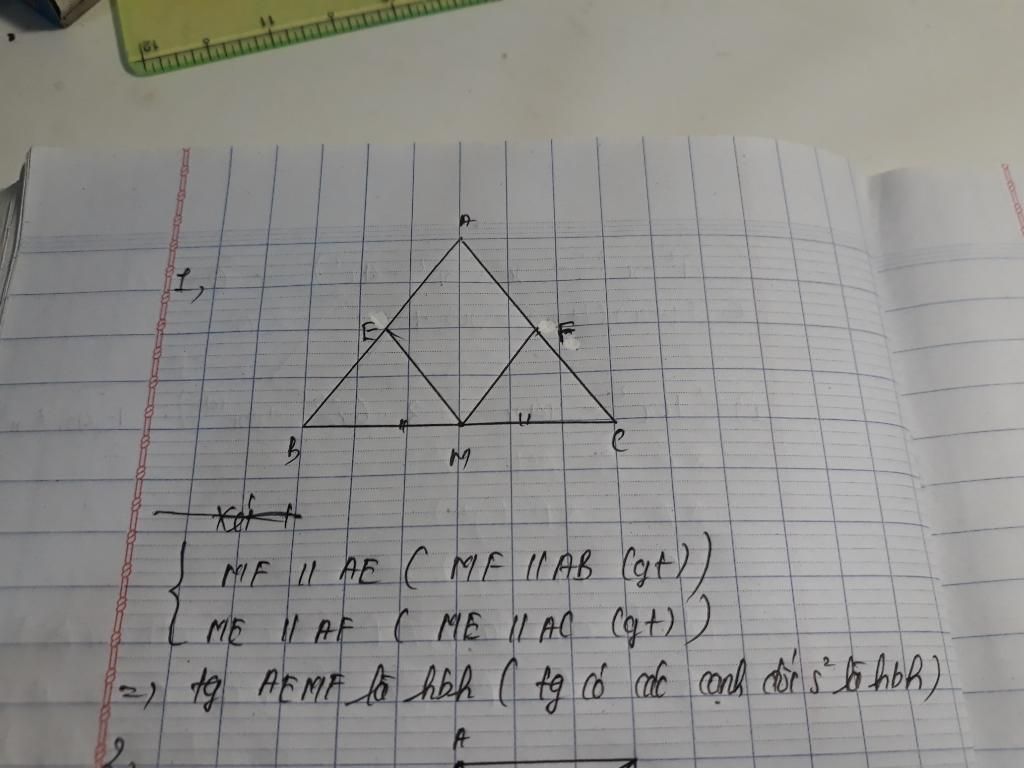 1,
A
E F
B M C
Xét t
MF // AE ( MF // AB (gt) )
ME // AF ( ME // AC (gt) )
=> tg AEMF là hbh ( tg có các cạnh đối s² là hbh )
2,
A